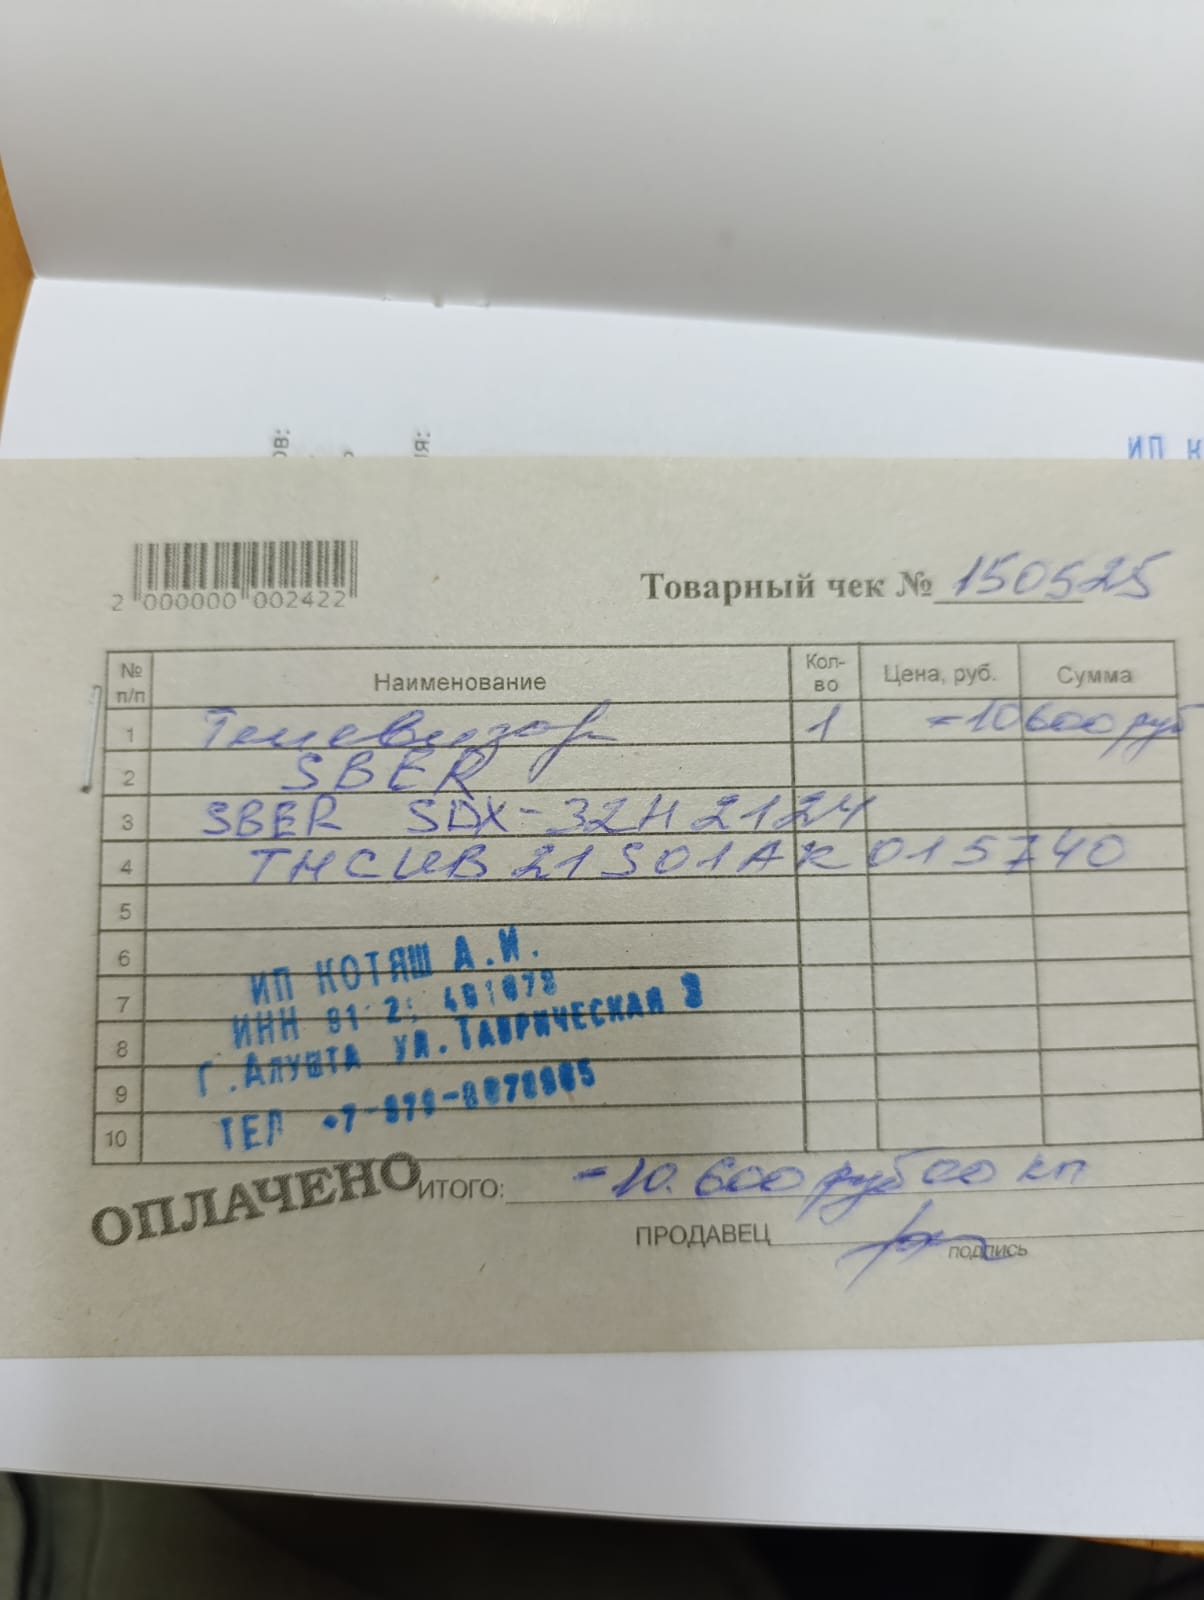 ов:
ия:
ИП К
2 000000 002422
Товарный чек № 150525
№ п/п Наименование Кол-во Цена, руб. Сумма
1 Телевизор 1 =10600 руб
2 SBER
3 SBER SDX-32H2124
4 THCUB21S01AK015740
5
6
7
8
9
10
ИП КОТЯШ А.И.
ИНН
Г.АЛУШТА УЛ.ТАВРИЧЕСКАЯ 3
ТЕЛ
ОПЛАЧЕНО
ИТОГО: =10.600 руб 00 кп
ПРОДАВЕЦ
подпись